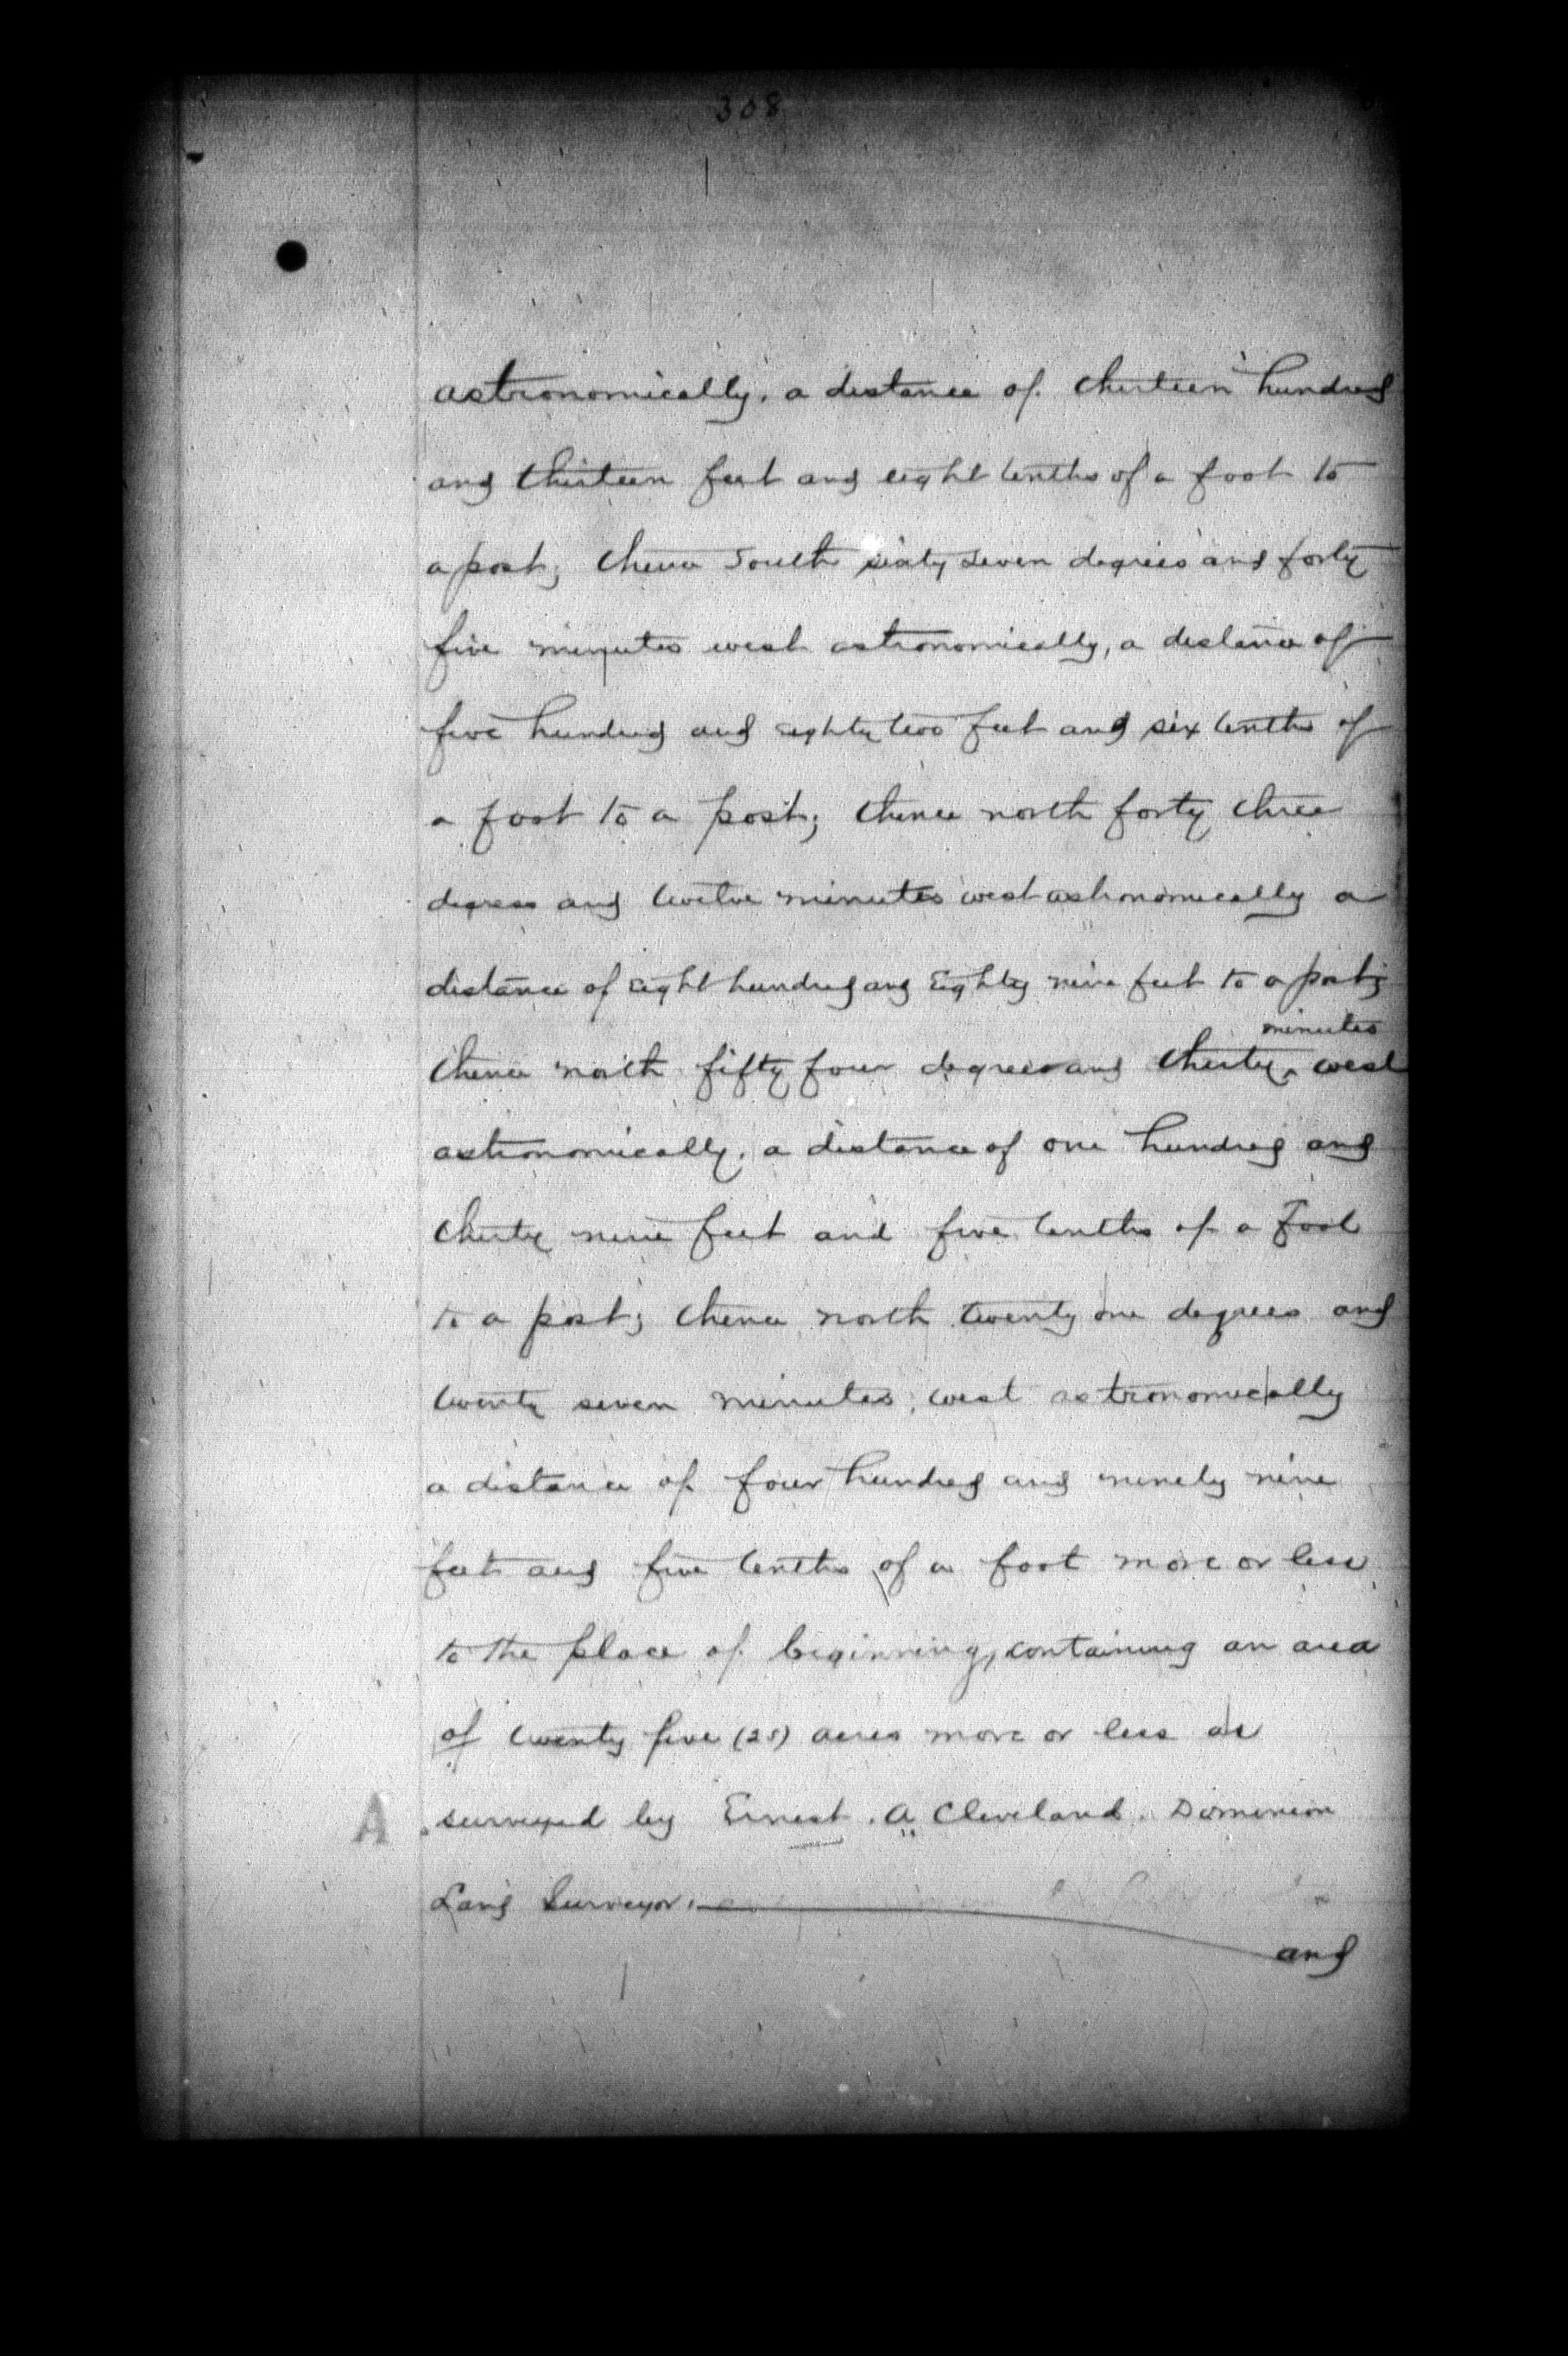 308
astronomically, a distance of thirteen hundred
and thirteen feet and eight tenths of a foot to
a post; thence South sixty seven degrees and forty
five minutes west astronomically, a distance of
five hundred and eighty two feet and six tenths of
a foot to a post; thence north forty three
degrees and twelve minutes west astronomically a
distance of eight hundred and Eighty nine feet to a post;
minutes
thence north fifty four degrees and thirty ^ west
astronomically, a distance of one hundred and
thirty nine feet and five tenths of a Foot
to a post; thence north twenty one degrees and
twenty seven minutes, west astronomically
a distance of four hundred and ninety nine
feet and five tenths of a foot more or less
to the place of beginning, containing an area
of twenty five (25) acres more or less as
A surveyed by Ernest. A. Cleveland. Dominion
Land Surveyor.
and